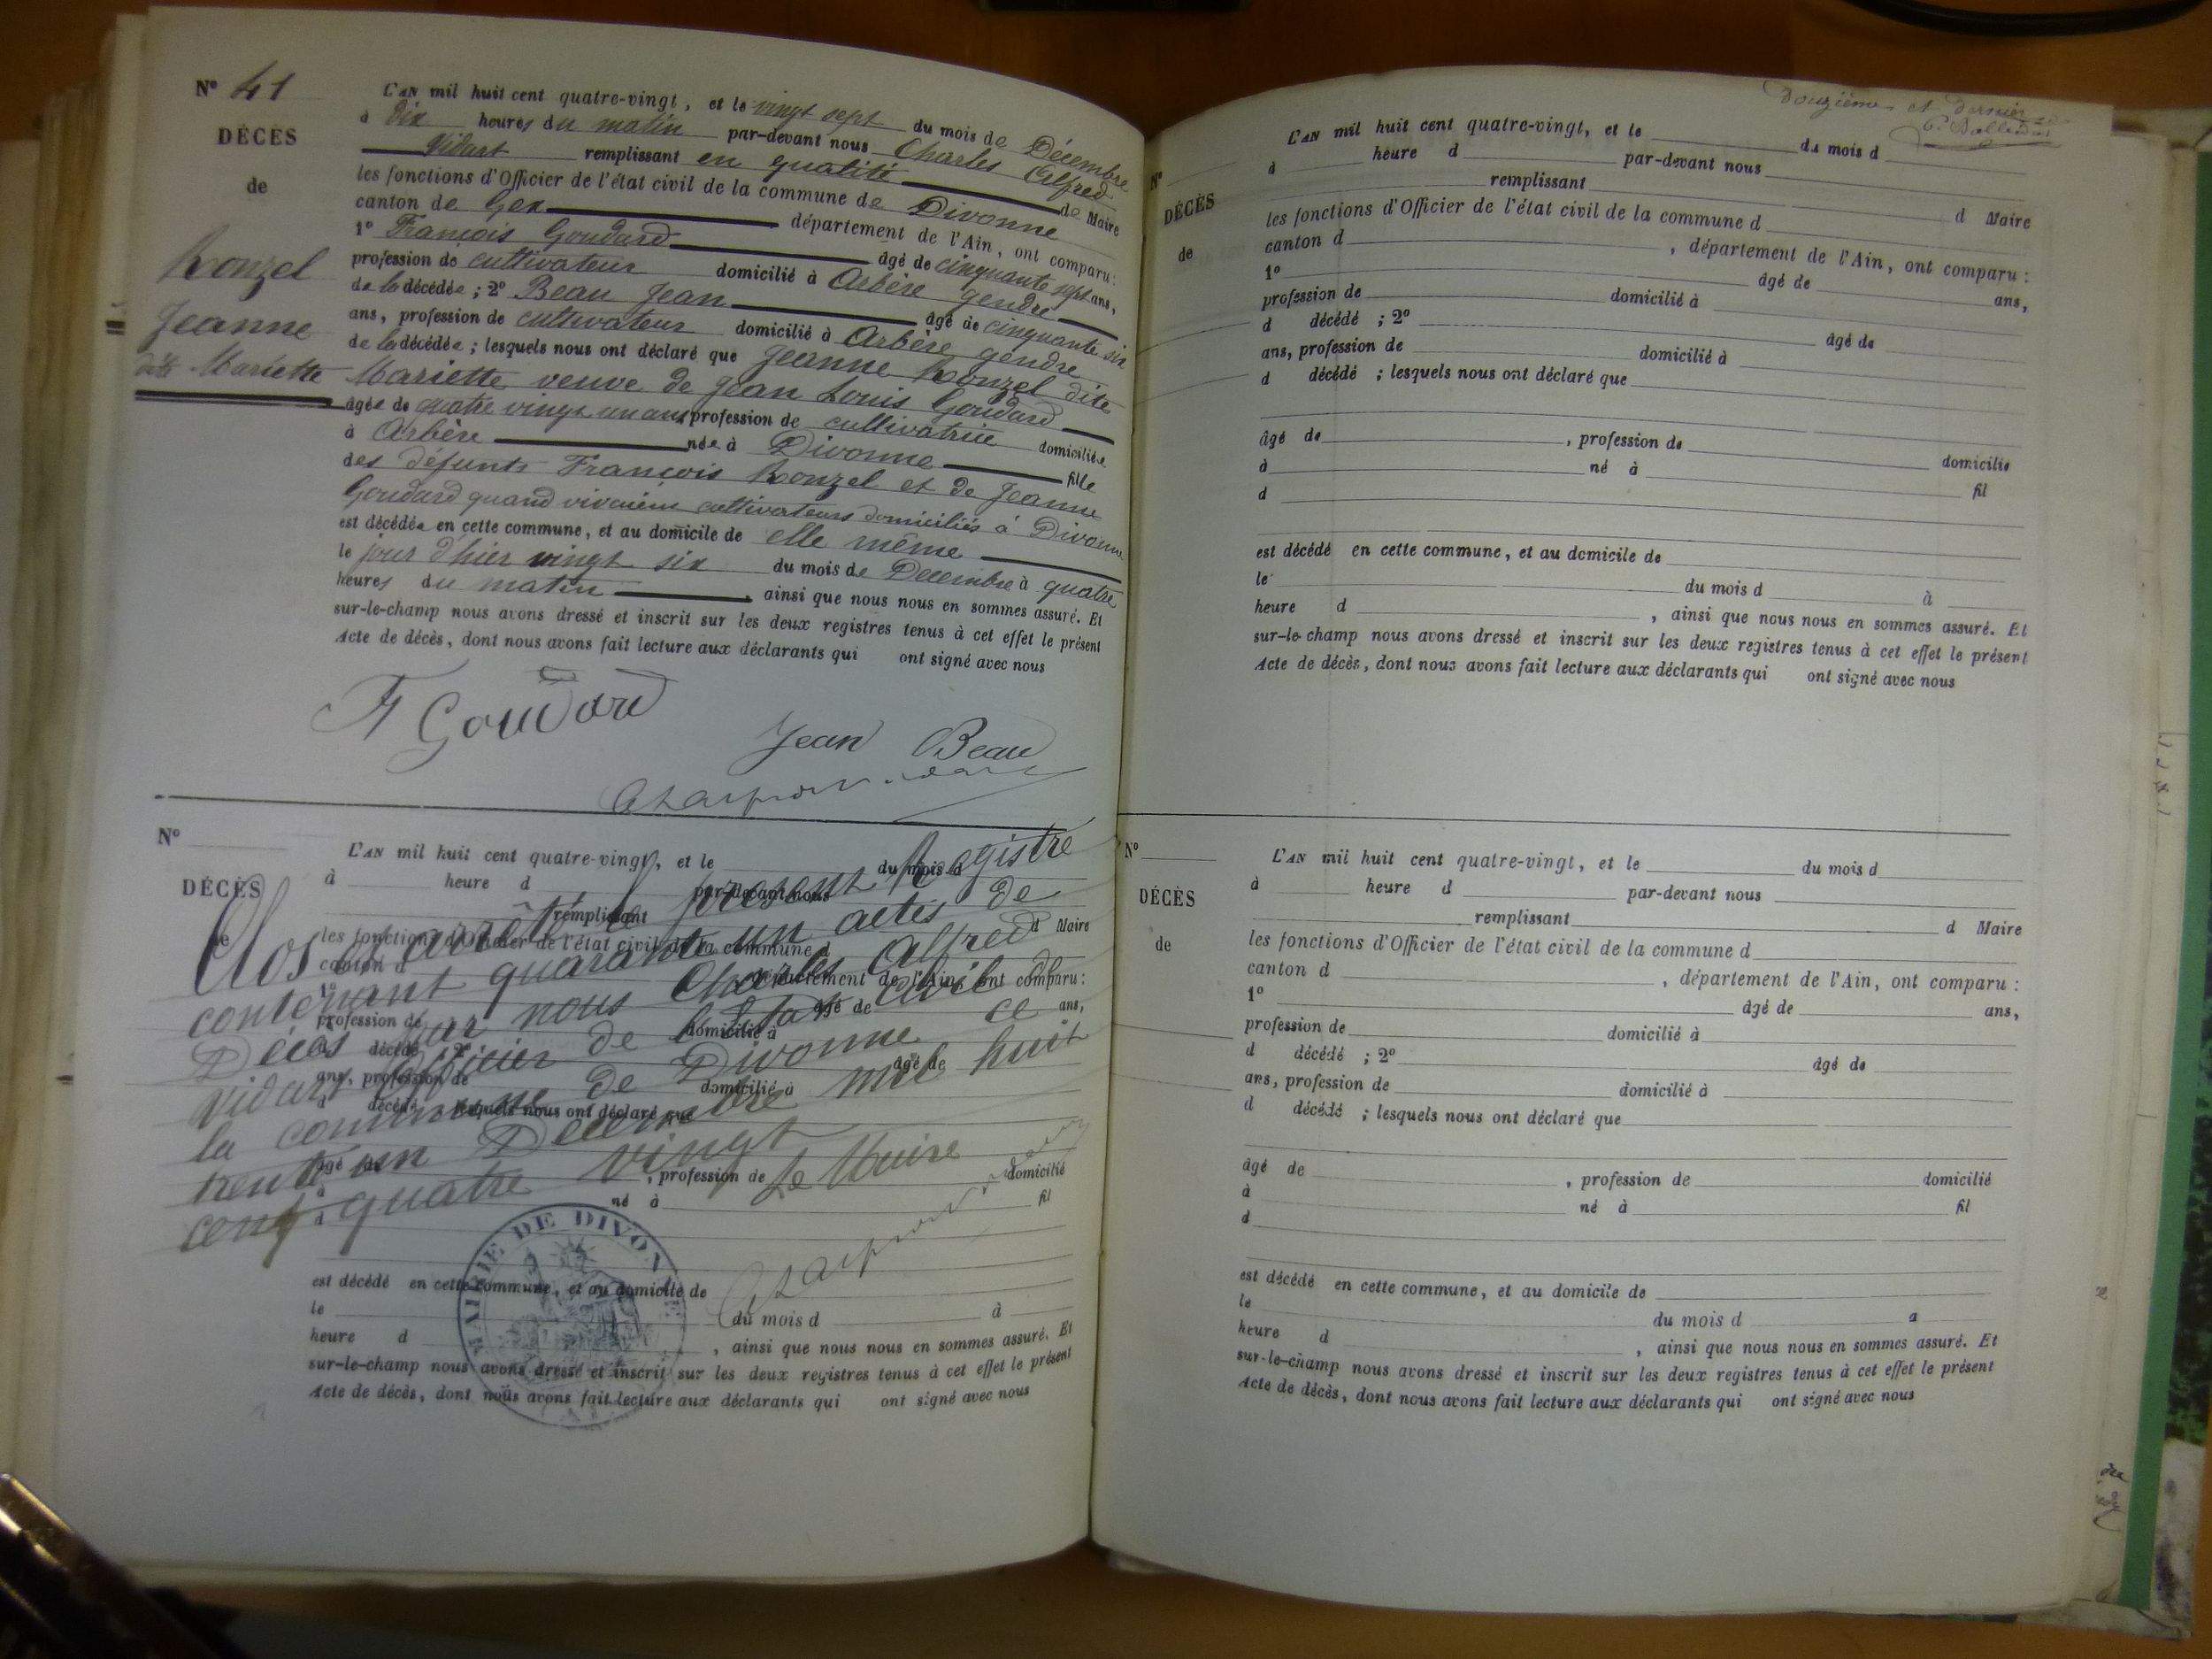 N° 41
DÉCÈS
de
Honzel
Jeanne
dite Mariette
L'AN mil huit cent quatre-vingt, et le vingt sept du mois de Décembre
à Dix heures du matin par-devant nous Charles Alfred
Vidart remplissant en qualité de Maire
les fonctions d'Officier de l'état civil de la commune de Divonne
canton de Gex département de l'Ain, ont comparu :
1° François Goudard âgé de cinquante sept ans,
profession de cultivateur domicilié à Arbère gendre
de la décédée ; 2° Beau Jean âgé de cinquante six
ans, profession de cultivateur domicilié à Arbère gendre
de la décédée ; lesquels nous ont déclaré que Jeanne Honzel dite
Mariette veuve de Jean Louis Goudard
âgée de quatre vingt un ans, profession de cultivatrice domiciliée
à Arbère née à Divonne fille
des défunts François Honzel et de Jeanne
Goudard quand vivaient cultivateurs domiciliés à Divonne
est décédée en cette commune, et au domicile de elle même
le jour d'hier vingt six du mois de Décembre à quatre
heures du matin ainsi que nous nous en sommes assuré. Et
sur-le-champ nous avons dressé et inscrit sur les deux registres tenus à cet effet le présent
Acte de décès, dont nous avons fait lecture aux déclarants qui ont signé avec nous
F Goudard
Jean Beau
N°
DÉCÈS
de
L'AN mil huit cent quatre-vingt, et le du mois d
à heure d par-devant nous
remplissant d Maire
les fonctions d'Officier de l'état civil de la commune d
canton d département de l'Ain, ont comparu :
1° âgé de ans,
profession de domicilié à
d décédé ; 2° âgé de
ans, profession de domicilié à
d décédé ; lesquels nous ont déclaré que
âgé de , profession de domicilié
à né à fil
d
est décédé en cette commune, et au domicile de
le du mois d à
heure d , ainsi que nous nous en sommes assuré. Et
sur-le-champ nous avons dressé et inscrit sur les deux registres tenus à cet effet le présent
Acte de décès, dont nous avons fait lecture aux déclarants qui ont signé avec nous
Clos et arrêté le présent Registre
contenant quarante un actes de
Décès par nous Charles Alfred
Vidart officier de l'Etat civil de
la commune de Divonne ce
trente un Décembre mil huit
cent quatre vingt
Le Maire
MAIRIE DE DIVONNE
douzième et dernier
N°
DÉCÈS
de
L'AN mil huit cent quatre-vingt, et le du mois d
à heure d par-devant nous
remplissant d Maire
les fonctions d'Officier de l'état civil de la commune d
canton d , département de l'Ain, ont comparu :
1° âgé de ans,
profession de domicilié à
d décédé ; 2° âgé de
ans, profession de domicilié à
d décédé ; lesquels nous ont déclaré que
âgé de , profession de domicilié
à né à fil
d
est décédé en cette commune, et au domicile de
le du mois d à
heure d , ainsi que nous nous en sommes assuré. Et
sur-le-champ nous avons dressé et inscrit sur les deux registres tenus à cet effet le présent
Acte de décès, dont nous avons fait lecture aux déclarants qui ont signé avec nous
N°
DÉCÈS
de
L'AN mil huit cent quatre-vingt, et le du mois d
à heure d par-devant nous
remplissant d Maire
les fonctions d'Officier de l'état civil de la commune d
canton d , département de l'Ain, ont comparu :
1° âgé de ans,
profession de domicilié à
d décédé ; 2° âgé de
ans, profession de domicilié à
d décédé ; lesquels nous ont déclaré que
âgé de , profession de domicilié
à né à fil
d
est décédé en cette commune, et au domicile de
le du mois d à
heure d , ainsi que nous nous en sommes assuré. Et
sur-le-champ nous avons dressé et inscrit sur les deux registres tenus à cet effet le présent
Acte de décès, dont nous avons fait lecture aux déclarants qui ont signé avec nous